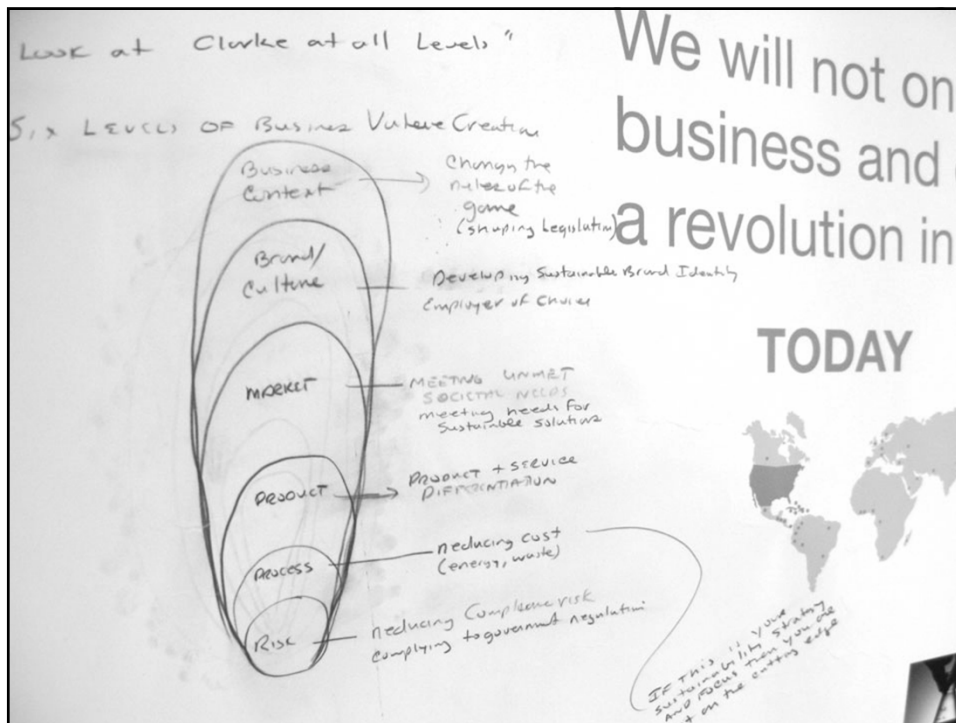 Look at "Clarke at all Levels"
Six Levels of Busines Value Creation
Business
Context
Changing the
rules of the
game
(shaping Legislation)
Brand/
Culture
Developing Sustainable Brand Identity
Employer of Choice
MARKET
MEETING UNMET
SOCIETAL NEEDS
meeting needs for
sustainable solutions
PRODUCT
PRODUCT + SERVICE
DIFFERENTIATION
PROCESS
Reducing cost
(energy, waste)
RISK
Reducing Compliance risk
Complying to government regulation
IF THIS is your
sustainability strategy
AND FOCUS then you are
on the cutting edge
We will not on
business and
a revolution in
TODAY